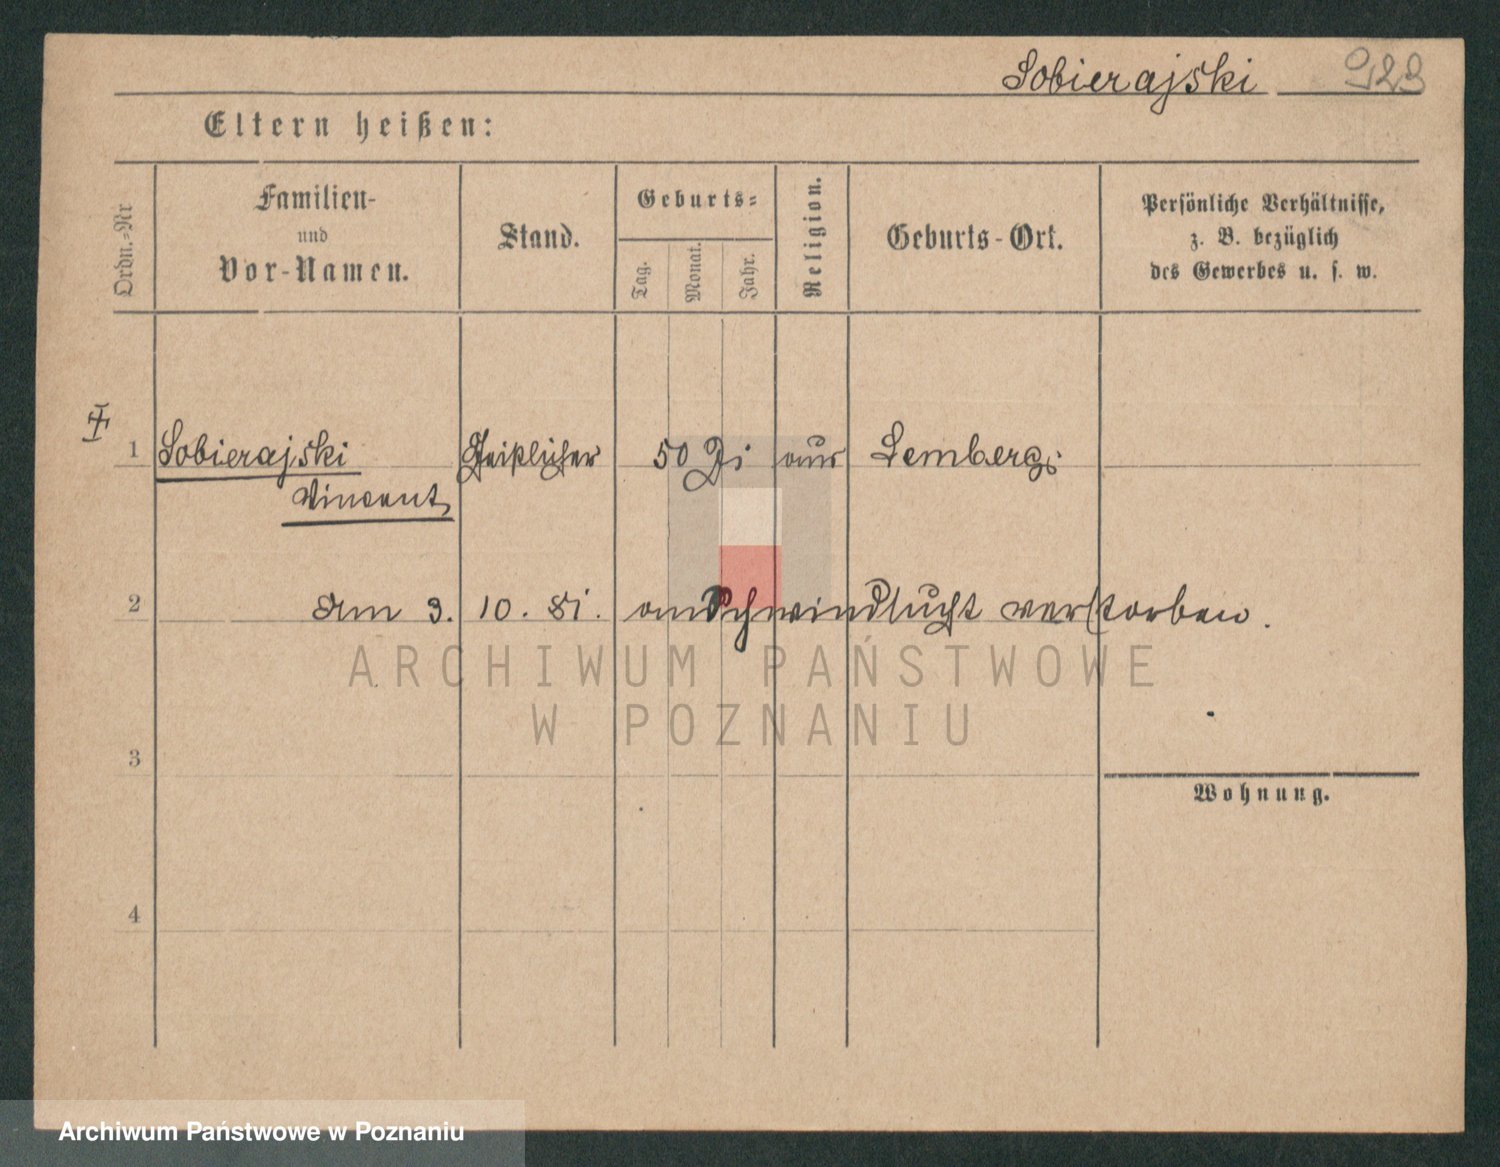 Sobierajski 923
Eltern heißen:
Ordn.-Nr
Familien-
und
Vor-Namen.
Stand.
Geburts-
Tag.
Monat.
Jahr.
Religion.
Geburts-Ort.
Persönliche Verhältnisse,
z. B. bezüglich
des Gewerbes u. s. w.
1 Sobierajski Geistlicher 50 J aus Lemberg
Vincent
2 Am 3. 10. 81. an Schwindsucht verstorben.
ARCHIWUM PAŃSTWOWE
W POZNANIU
3
Wohnung.
4
Archiwum Państwowe w Poznaniu